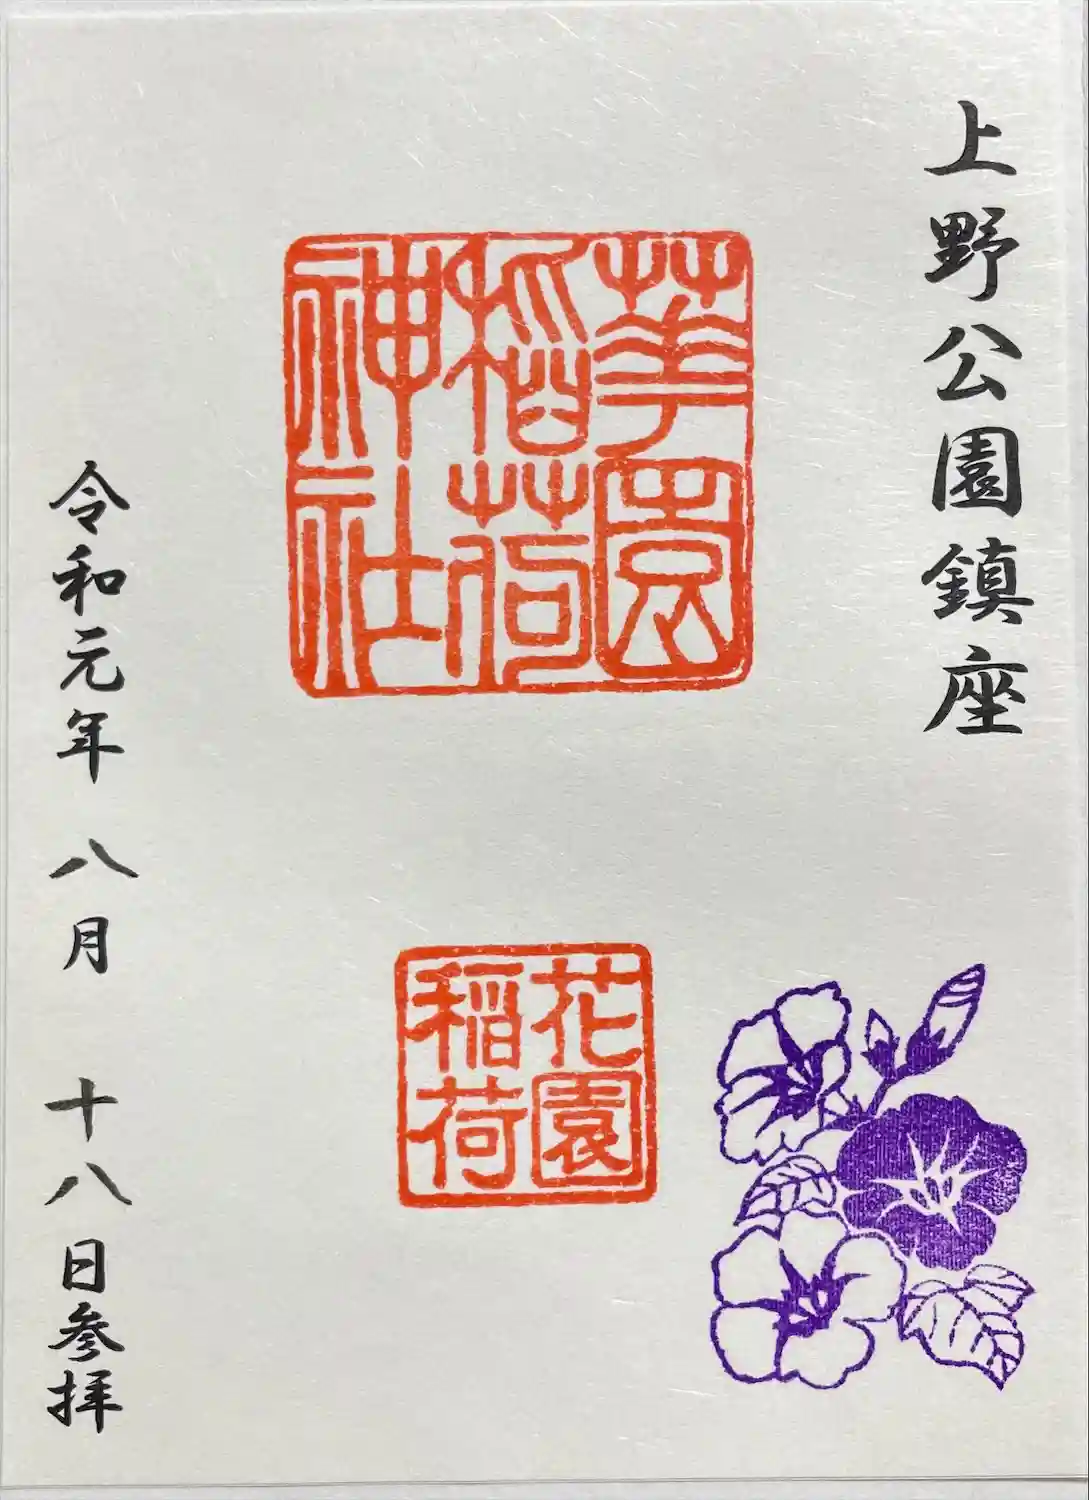 上野公園鎮座
華園
稲荷
神社
花園
稲荷
令和元年 八月 十八日参拝